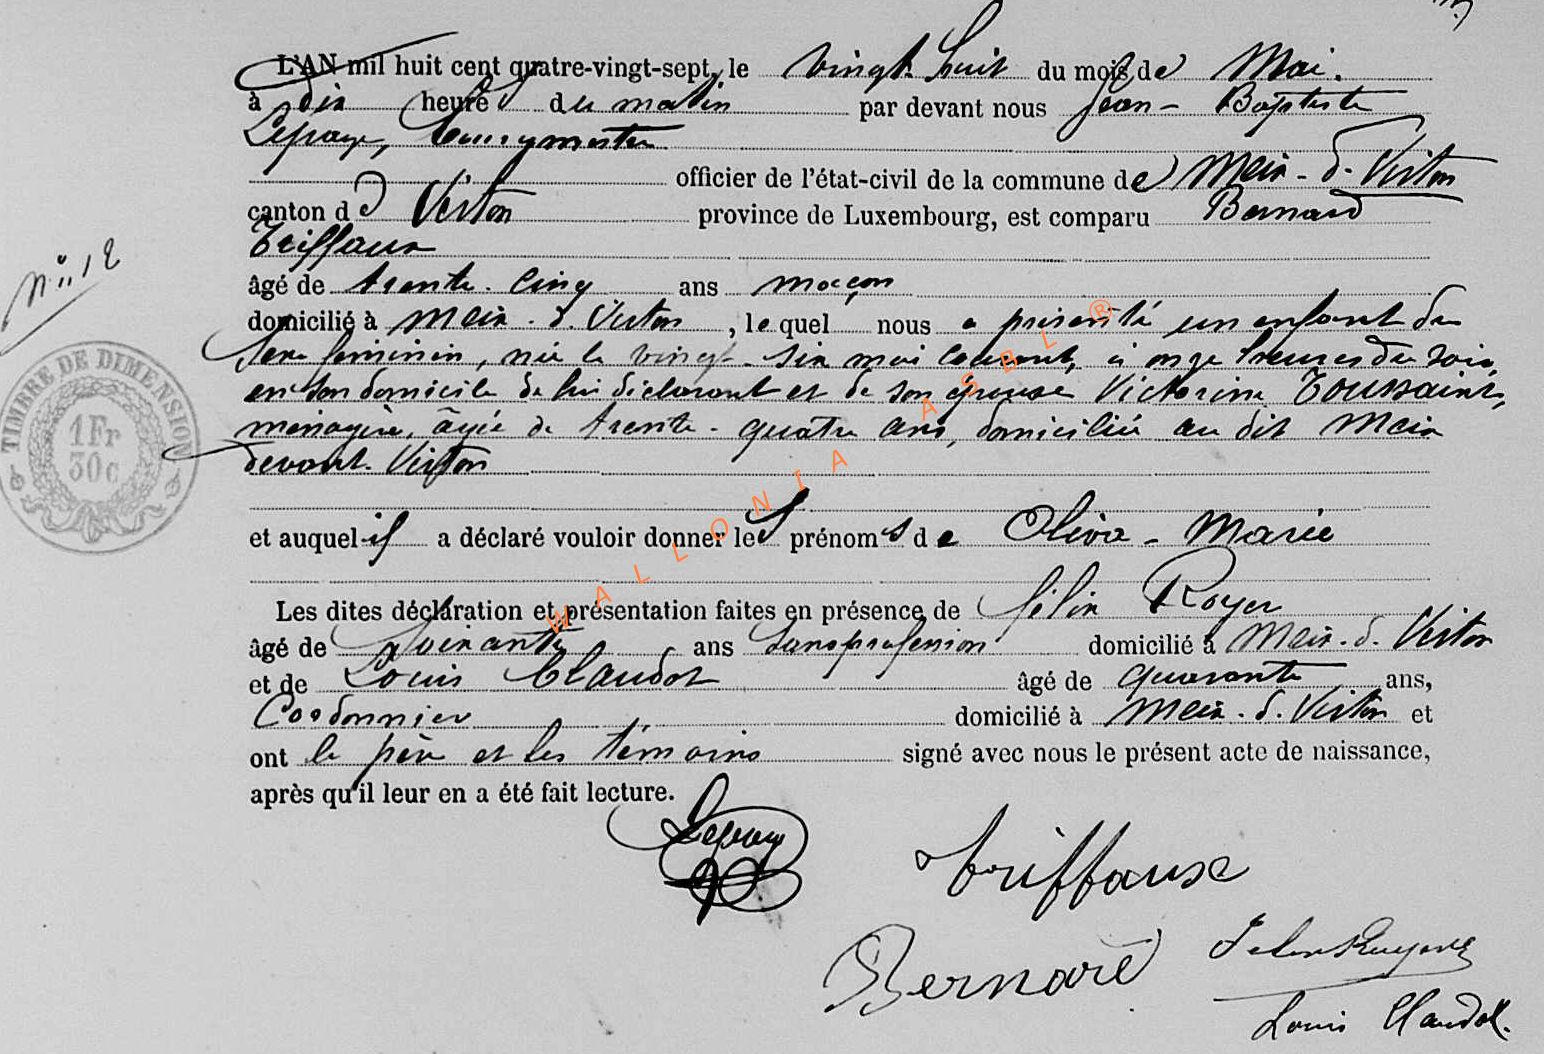 L'AN mil huit cent quatre-vingt-sept, le vingt huit du mois de Mai.
à dix heures du matin par devant nous Jean-Baptiste
Lepage, bourgmestre
officier de l'état-civil de la commune de Meix-d-Virton
canton de Virton province de Luxembourg, est comparu Bernard
Triffaux
âgé de trente-cinq ans maçon
domicilié à Meix-d.Virton, lequel nous a présenté un enfant du
sexe féminin, née le vingt-six mai courant, à onze heures du soir,
en son domicile de lui déclarant et de son épouse Victorine Toussaint,
ménagère, âgée de trente-quatre ans, domiciliée au dit Meix
devant-Virton
et auquel il a déclaré vouloir donner les prénoms de Oliva-Marie
Les dites déclaration et présentation faites en présence de Félix Royer
âgé de soixante ans sans profession domicilié à Meix-d.Virton
et de Louis Claudot âgé de quarante ans,
Cordonnier domicilié à Meix-d.Virton et
ont le père et les témoins signé avec nous le présent acte de naissance,
après qu'il leur en a été fait lecture.
N° 12
TIMBRE DE DIMENSION
1 Fr
30 c
WALLONIA ASBL ®
Lepage
triffaux
Bernard
Louis Claudot.